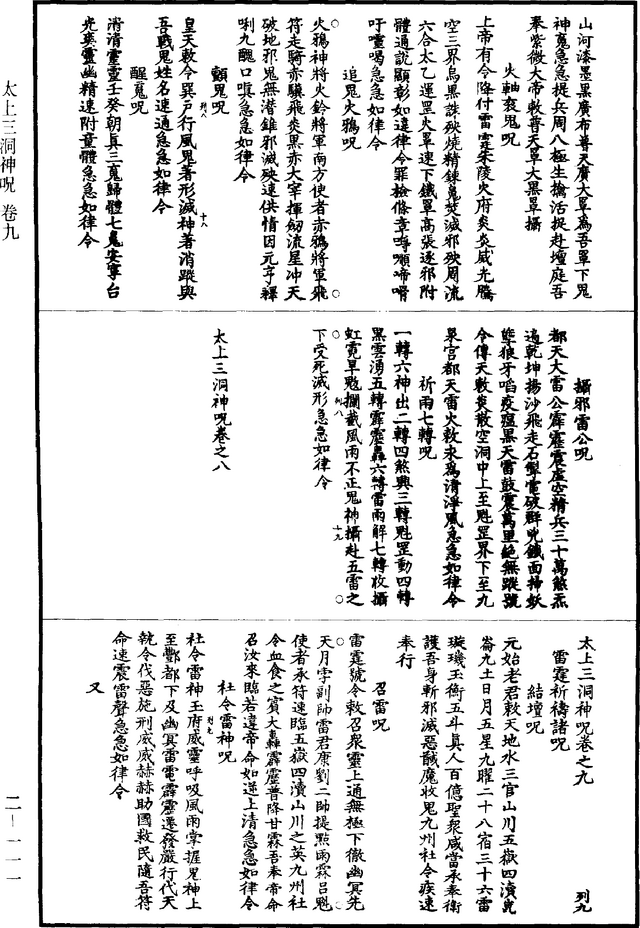 山河漆墨黑廣布普天廣大罩為吾罩下鬼
神鬼急急提兵周八極生擒活捉赴壇庭吾
奉紫微大帝敕普天罩大黑罩攝
火軸袞鬼呪
上帝有令降付雷霆朱陵火府炎炎威光騰
空三界烏黑誅殃燒精鍊鬼焚滅邪殃周流
六合太乙運罡火罩速下鐵罩高張逐邪附
體通說顯彰如違律令罪檢條章
吁嚧喝急急如律令
追鬼火鴉呪
火鴉神將火鈴將軍南方使者赤鴉將軍飛
符走騎赤驥飛炎黑赤大宰揮劒流星冲天
破地邪鬼無潛錐邪滅殃速供情因元亨釋
唎九醜口嗔急急如律令
顫鬼呪
皇天敕令巽戶行風鬼著形滅神著消蹤與
吾戰鬼姓名速通急急如律令
醒魂呪
淵清靈靈壬癸朝真三魂歸體七魄安寧台
光爽靈幽精速附童體急急如律令
攝邪雷公呪
都天大雷公霹靂震虛空精兵三十萬煞炁
遍乾坤揚沙飛走石掣電破群兇鐵面掃妖
孽狼牙啗疫瘟黑天雷鼓震萬里絕無蹤號
令傳天敕莫散空洞中上至魁罡界下至九
泉宮都天雷火敕永為清淨風急急如律令
祈雨七轉呪
一轉六神出二轉四煞興三轉魁罡動四轉
黑雲湧五轉霹靂轟六轉雷雨解七轉收攝
虹霓旱魃攔截風雨不正鬼神攝赴五雷之
下受死滅形急急如律令
太上三洞神呪卷之八
太上三洞神呪卷之九
列九
雷霆祈禱諸呪
結壇呪
元始老君敕天地水三官山川五嶽四瀆崑
崙九土日月五星九曜二十八宿三十六雷
璇璣玉衡五斗真人百億聖衆咸當承奉衛
護吾身斬邪滅惡馘魔收鬼九州社令疾速
奉行
召雷呪
雷霆號令敕召衆靈上通無極下徹幽冥先
天月孛副帥雷君康劉二帥提點雨霖呂魁
使者承符速臨五嶽四瀆山川之英九州社
令血食之賓大轟霹靂普降甘霖吾奉帝命
召汝來臨若違帝命如逆上清急急如律令
社令雷神呪
社令雷神玉府威靈呼吸風雨掌握鬼神上
至酆都下及幽冥雷電霹靂遷發嚴行代天
執令伐惡施刑威威赫赫助國救民隨吾符
命速震雷聲急急如律令
又
太上三洞神呪 卷九
二－一一一